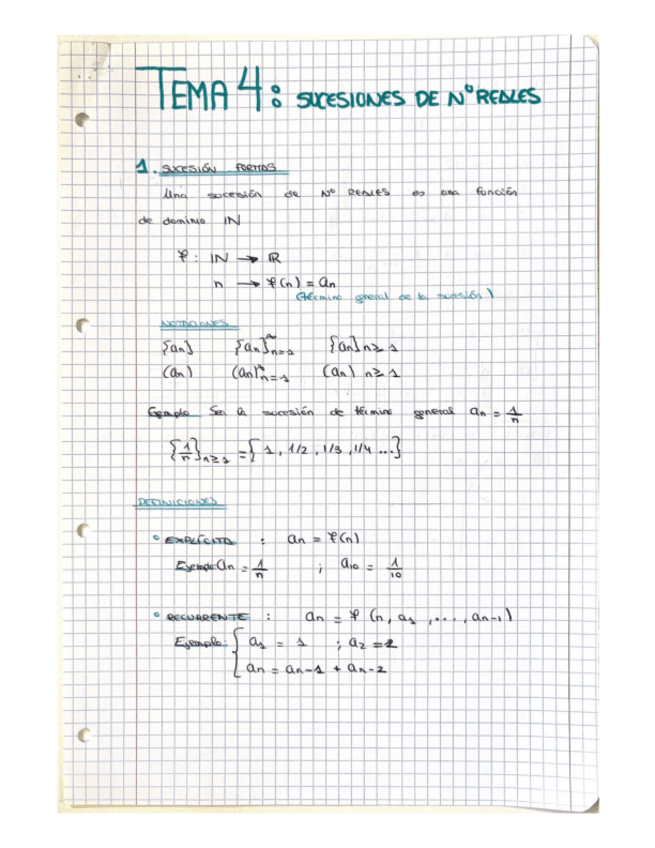 TEMA 4: SUCESIONES DE Nº REALES
1. SUCESIÓN FORMAS
Una sucesión de Nº REALES es una función
de dominio IN
φ: IN → IR
n → φ(n) = an
(término general de la sucesión)
NOTACIONES
{an} {an}∞n=1 {an}n≥1
(an) (an)∞n=1 (an) n≥1
Ejemplo Sea la sucesión de término general an = 1/n
{1/n}n≥1 = { 1, 1/2, 1/3, 1/4 ...}
DEFINICIONES
° EXPLÍCITA : an = φ(n)
Ejemplo: an = 1/n ; a10 = 1/10
° RECURRENTE : an = φ (n, a1, ..., an-1)
Ejemplo: { a1 = 1 ; a2 = 2
an = an-1 + an-2